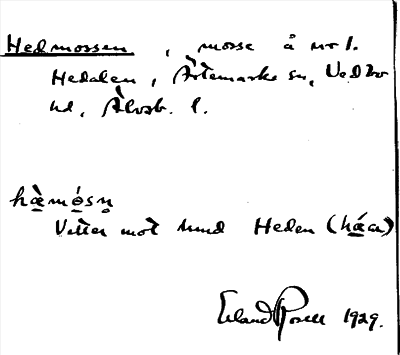 Hedmossen, mosse å nr 1.
Hedalen, Ärtemarks sn, Vedbo
hd, Älvsb. l.
hæ̀mo̝sn̥
Vetter mot sund Heden (hǽa)
Erland Rosell 1929.